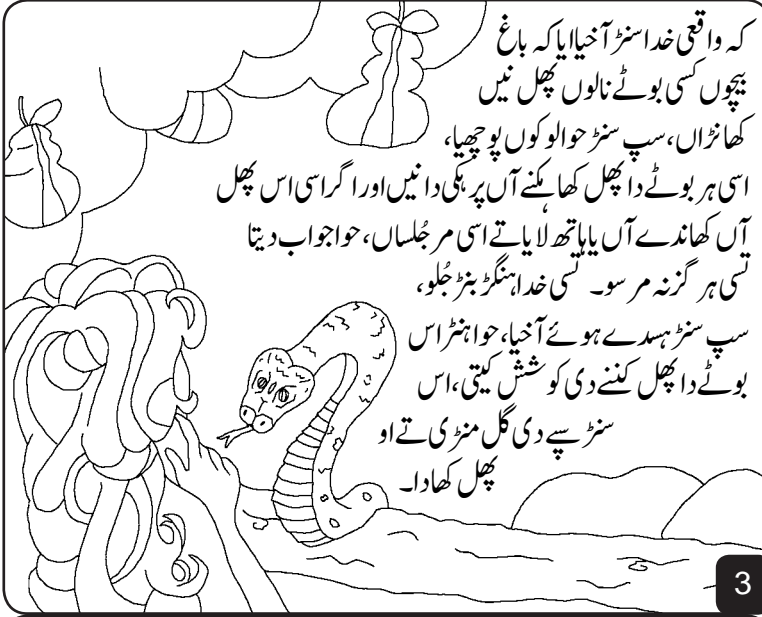 کہ واقعی خدا سنڑ آخیا ایا کہ باغ
بیچوں کسی بوٹے نالوں پھل نیں
کھانڑاں، سپ سنڑ حوا لوکوں پوچھیا،
اسی ہر بوٹے دا پھل کھا مکنے آں پر ہکی دا نیں اور اگر اسی اس پھل
آں کھاندے آں یا ہاتھ لایا تے اسی مر جُلساں، حوا جواب دیتا
تسی ہر گز نہ مرسو۔ تسی خدا ہنگڑ بنڑ جُلو،
سپ سنڑ ہسدے ہوئے آخیا، حوا ہنڑ اس
بوٹے دا پھل کننے دی کوشش کیتی، اس
سنڑ سپے دی گل منڑی تے او
پھل کھادا۔
3